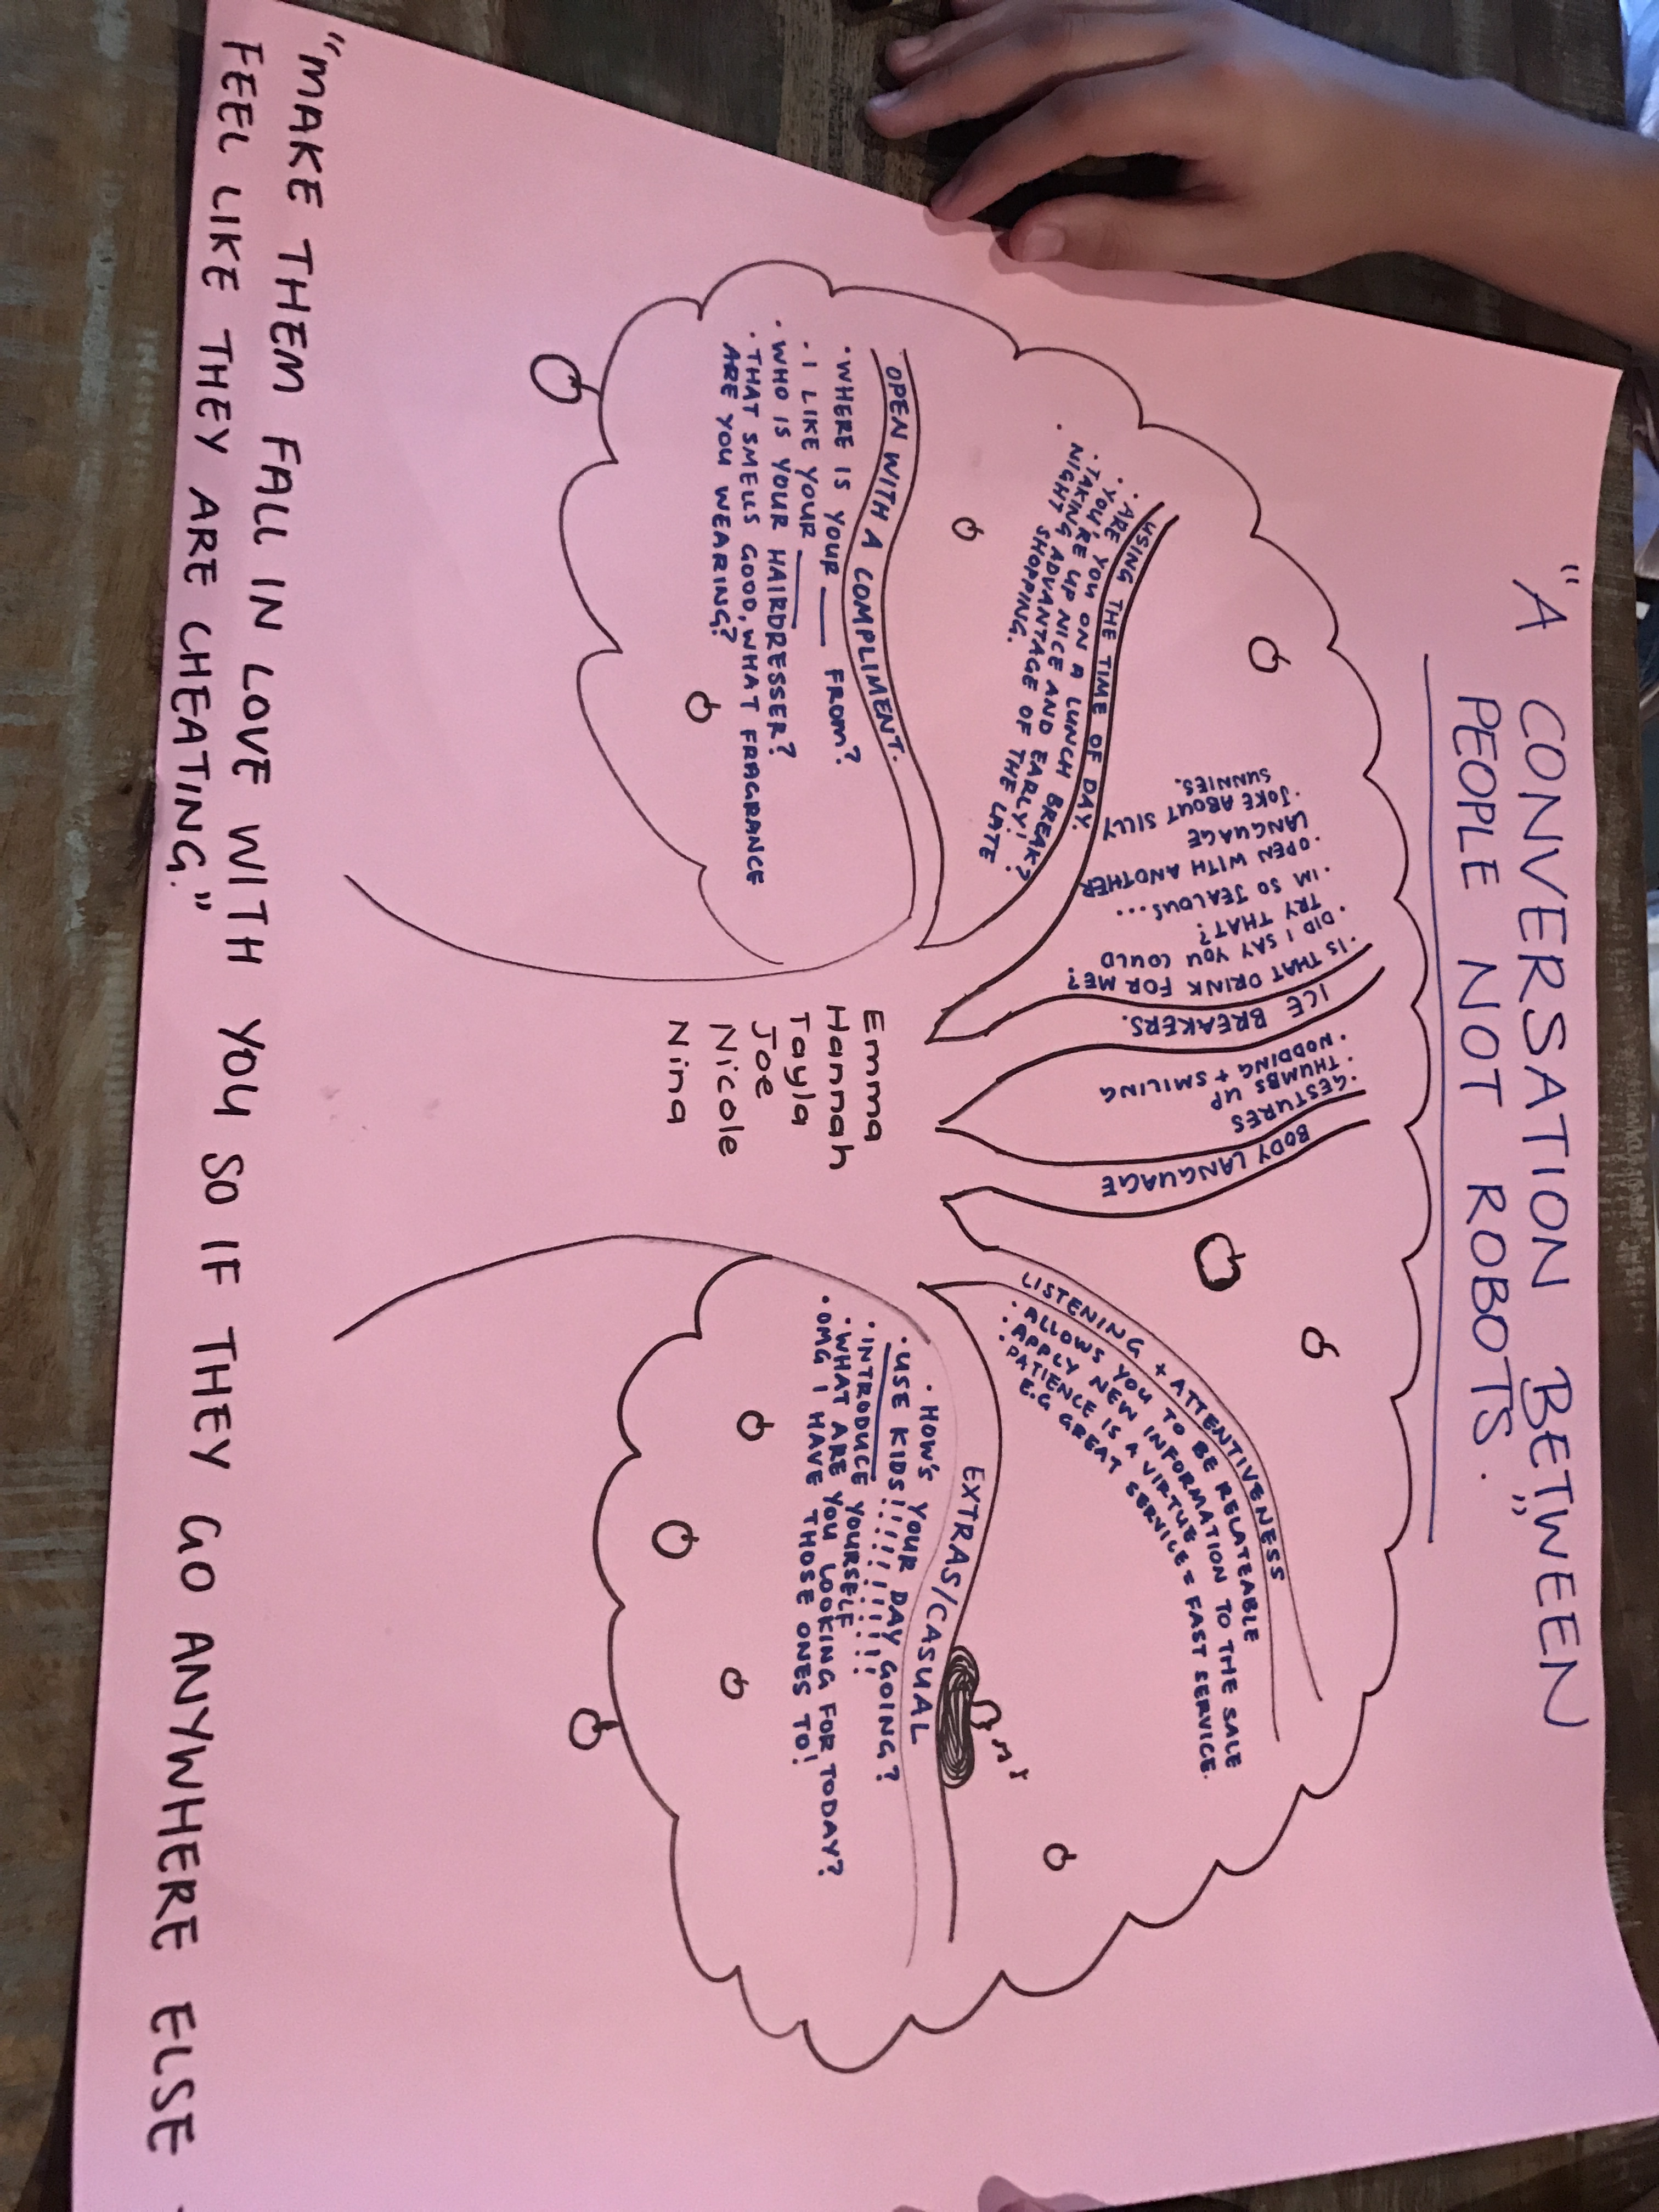 "A CONVERSATION BETWEEN
PEOPLE NOT ROBOTS."
USING THE TIME OF DAY.
· ARE YOU ON A LUNCH BREAK?
· YOU'RE UP NICE AND EARLY!
· TAKING ADVANTAGE OF THE LATE
NIGHT SHOPPING.
OPEN WITH A COMPLIMENT.
· WHERE IS YOUR ___ FROM?
· I LIKE YOUR ___
· WHO IS YOUR HAIRDRESSER?
· THAT SMELLS GOOD, WHAT FRAGRANCE
ARE YOU WEARING?
ICE BREAKERS.
· IS THAT DRINK FOR ME?
· DID I SAY YOU COULD
TRY THAT?
· IM SO JEALOUS...
· OPEN WITH ANOTHER
LANGUAGE
· JOKE ABOUT SILLY
SUNNIES.
BODY LANGUAGE
· GESTURES
· THUMBS UP
· NODDING + SMILING
LISTENING + ATTENTIVENESS
· ALLOWS YOU TO BE RELATEABLE
· APPLY NEW INFORMATION TO THE SALE
· PATIENCE IS A VIRTUE
E.G GREAT SERVICE ≠ FAST SERVICE.
EXTRAS/CASUAL
· HOW'S YOUR DAY GOING?
· USE KIDS!!!!!!!!!!
· INTRODUCE YOURSELF
· WHAT ARE YOU LOOKING FOR TODAY?
· OMG I HAVE THOSE ONES TO!
Emma
Hannah
Tayla
Joe
Nicole
Nina
"MAKE THEM FALL IN LOVE WITH YOU SO IF THEY GO ANYWHERE ELSE
FEEL LIKE THEY ARE CHEATING."